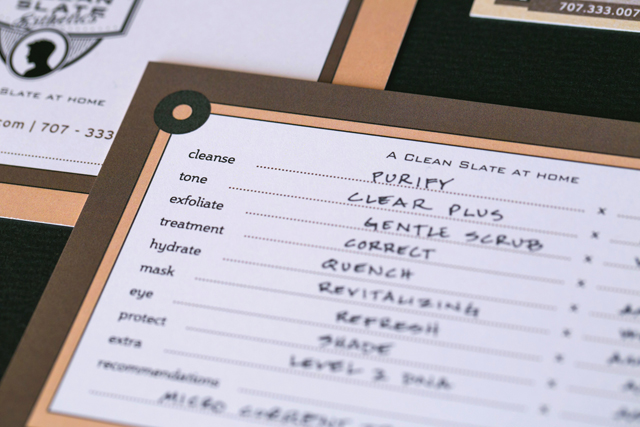 SLATE
Esthetics
SLATE AT HOME
com | 707 - 333
707.333.007
A CLEAN SLATE AT HOME
cleanse PURIFY x
tone CLEAR PLUS x
exfoliate GENTLE SCRUB x
treatment CORRECT
hydrate QUENCH
mask REVITALIZING
eye REFRESH
protect SHADE
extra LEVEL 2 DNA
recommendations
MICRO CURRENT